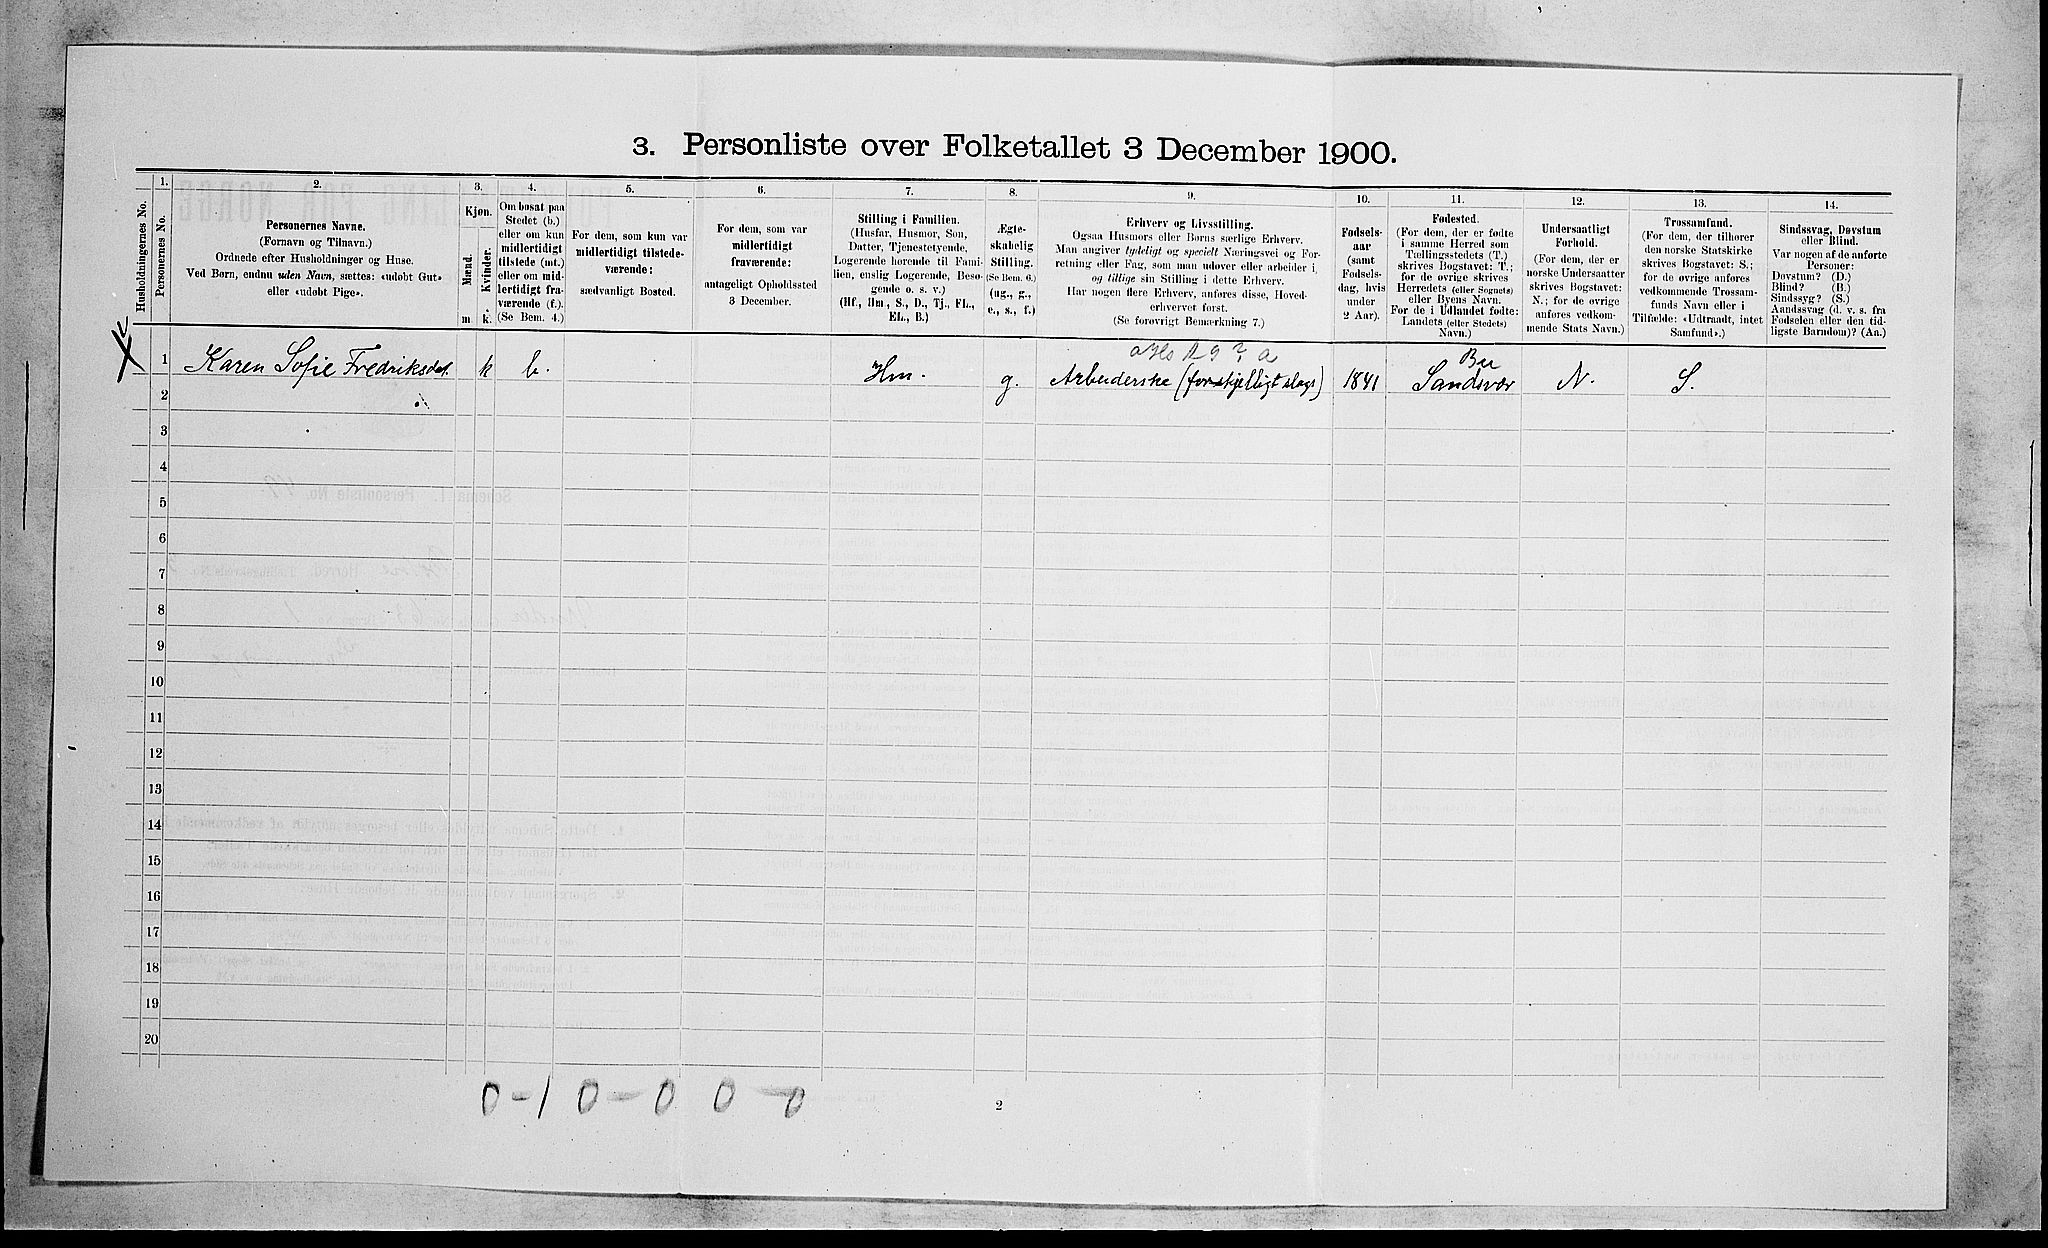 3. Personliste over Folketallet 3 December 1900.
Husholdningernes No.
1.
Personernes No.
2.
Personernes Navne.
(Fornavn og Tilnavn.)
Ordnede efter Husholdninger og Huse.
Ved Børn, endnu uden Navn, sættes: «udøbt Gut»
eller «udøbt Pige».
3.
Kjøn.
Mænd.
m.
Kvinder.
k.
4.
Om bosat paa
Stedet (b.)
eller om kun
midlertidigt
tilstede (mt.)
eller om mid-
lertidigt fra-
værende (f.)
(Se Bem. 4.)
5.
For dem, som kun var
midlertidigt tilstede-
værende:
sædvanligt Bosted.
6.
For dem, som var
midlertidigt
fraværende:
antageligt Opholdssted
3 December.
7.
Stilling i Familien.
(Husfar, Husmor, Søn,
Datter, Tjenestetyende,
Logerende hørende til Fami-
lien, enslig Logerende, Besø-
gende o. s. v.)
(Hf., Hm., S., D., Tj., FL.,
EL., B.)
8.
Ægte-
skabelig
Stilling.
(Se Bem. 6.)
(ug., g.,
e., s., f.)
9.
Erhverv og Livsstilling.
Ogsaa Husmors eller Børns særlige Erhverv.
Man angiver tydeligt og specielt Næringsvei og For-
retning eller Fag, som man udøver eller arbeider i,
og tillige sin Stilling i dette Erhverv.
Har nogen flere Erhverv, anføres disse, Hoved-
erhvervet først.
(Se forøvrigt Bemærkning 7.)
10.
Fødsels-
aar
(samt
Fødsels-
dag, hvis
under
2 Aar).
11.
Fødested.
(For dem, der er fødte
i samme Herred som
Tællingsstedets (T.)
skrives Bogstavet: T.;
for de øvrige skrives
Herredets (eller Sognets)
eller Byens Navn.
For de i Udlandet fødte:
Landets (eller Stedets)
Navn.)
12.
Undersaatligt
Forhold.
(For dem, der er
norske Undersaatter
skrives Bogstavet:
N.; for de øvrige
anføres vedkom-
mende Stats Navn.)
13.
Trossamfund.
(For dem, der tilhører
den norske Statskirke
skrives Bogstavet: S.;
for de øvrige anføres
vedkommende Trossam-
funds Navn eller i
Tilfælde: «Udtraadt, intet
Samfund».)
14.
Sindssvag, Døvstum
eller Blind.
Var nogen af de anførte
Personer:
Døvstum? (D.)
Blind? (B.)
Sindssyg? (S.)
Aandssvag (d. v. s. fra
Fødselen eller den tid-
ligste Barndom)? (Aa.)
1 Karen Sofie Fredriksdat. k b. Hm. g. Arbeiderske (forskjelligt slags) 1841 Sandsvær N. S.
2
3
4
5
6
7
8
9
10
11
12
13
14
15
16
17
18
19
20
0-1 0-0 0-0
2